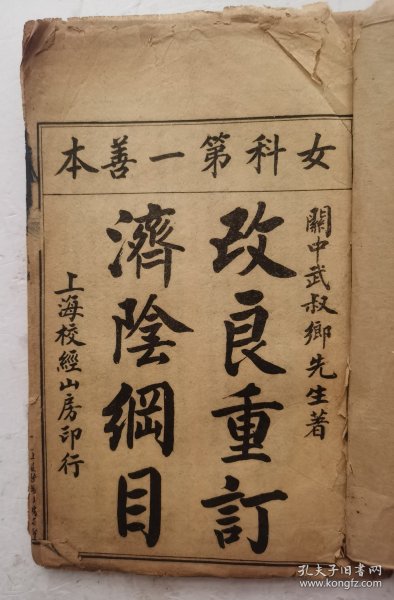 女科第一善本
關中武叔卿先生著
改良重訂
濟陰綱目
上海校經山房印行
孔夫子旧书网
www.kongfz.com